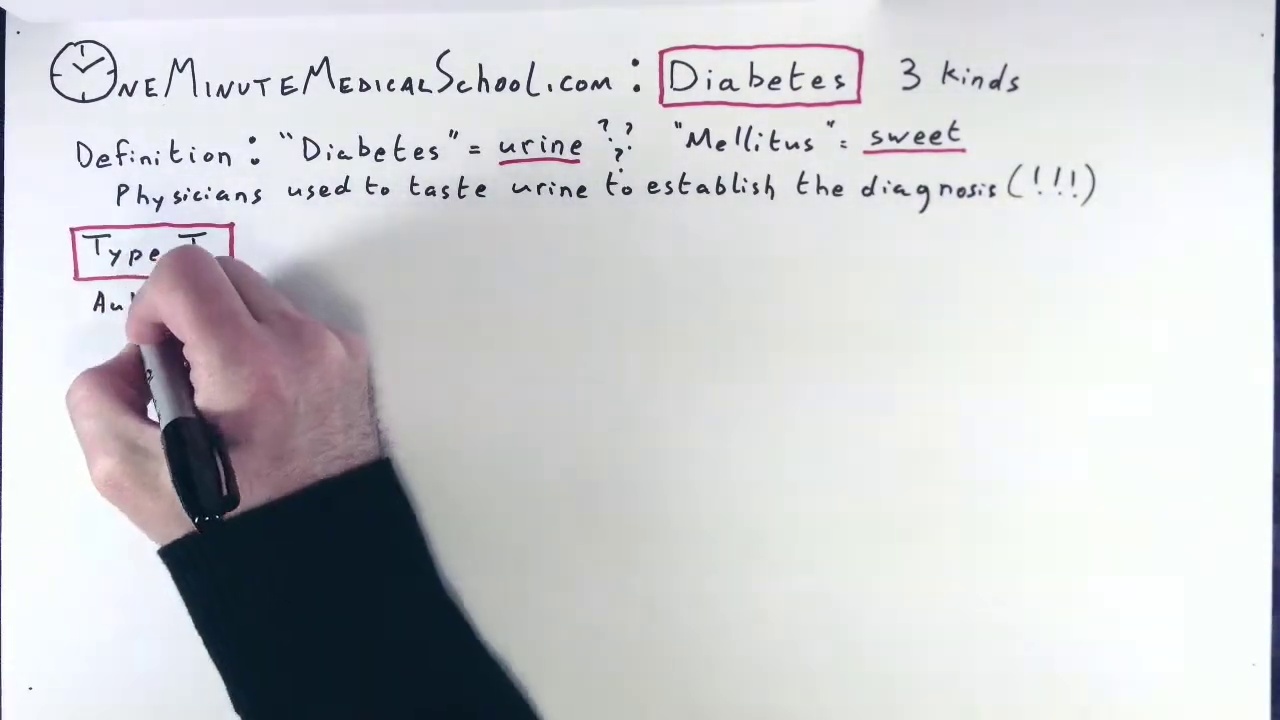 OneMinuteMedicalSchool.com: Diabetes 3 kinds
Definition: "Diabetes" = urine ??? "Mellitus" = sweet
Physicians used to taste urine to establish the diagnosis (!!!)
Type I